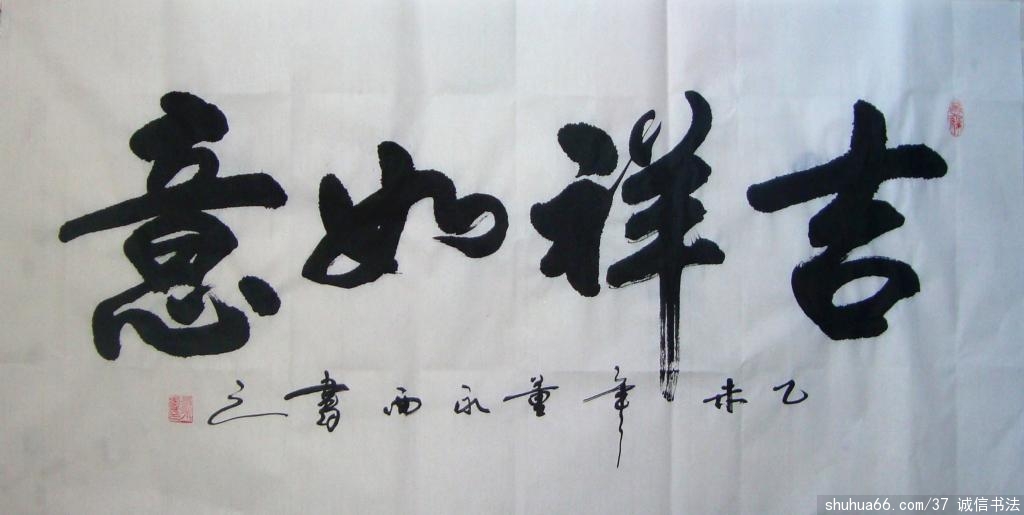 吉祥如意
乙未年董永西書之
shuhua66.com/37 诚信书法